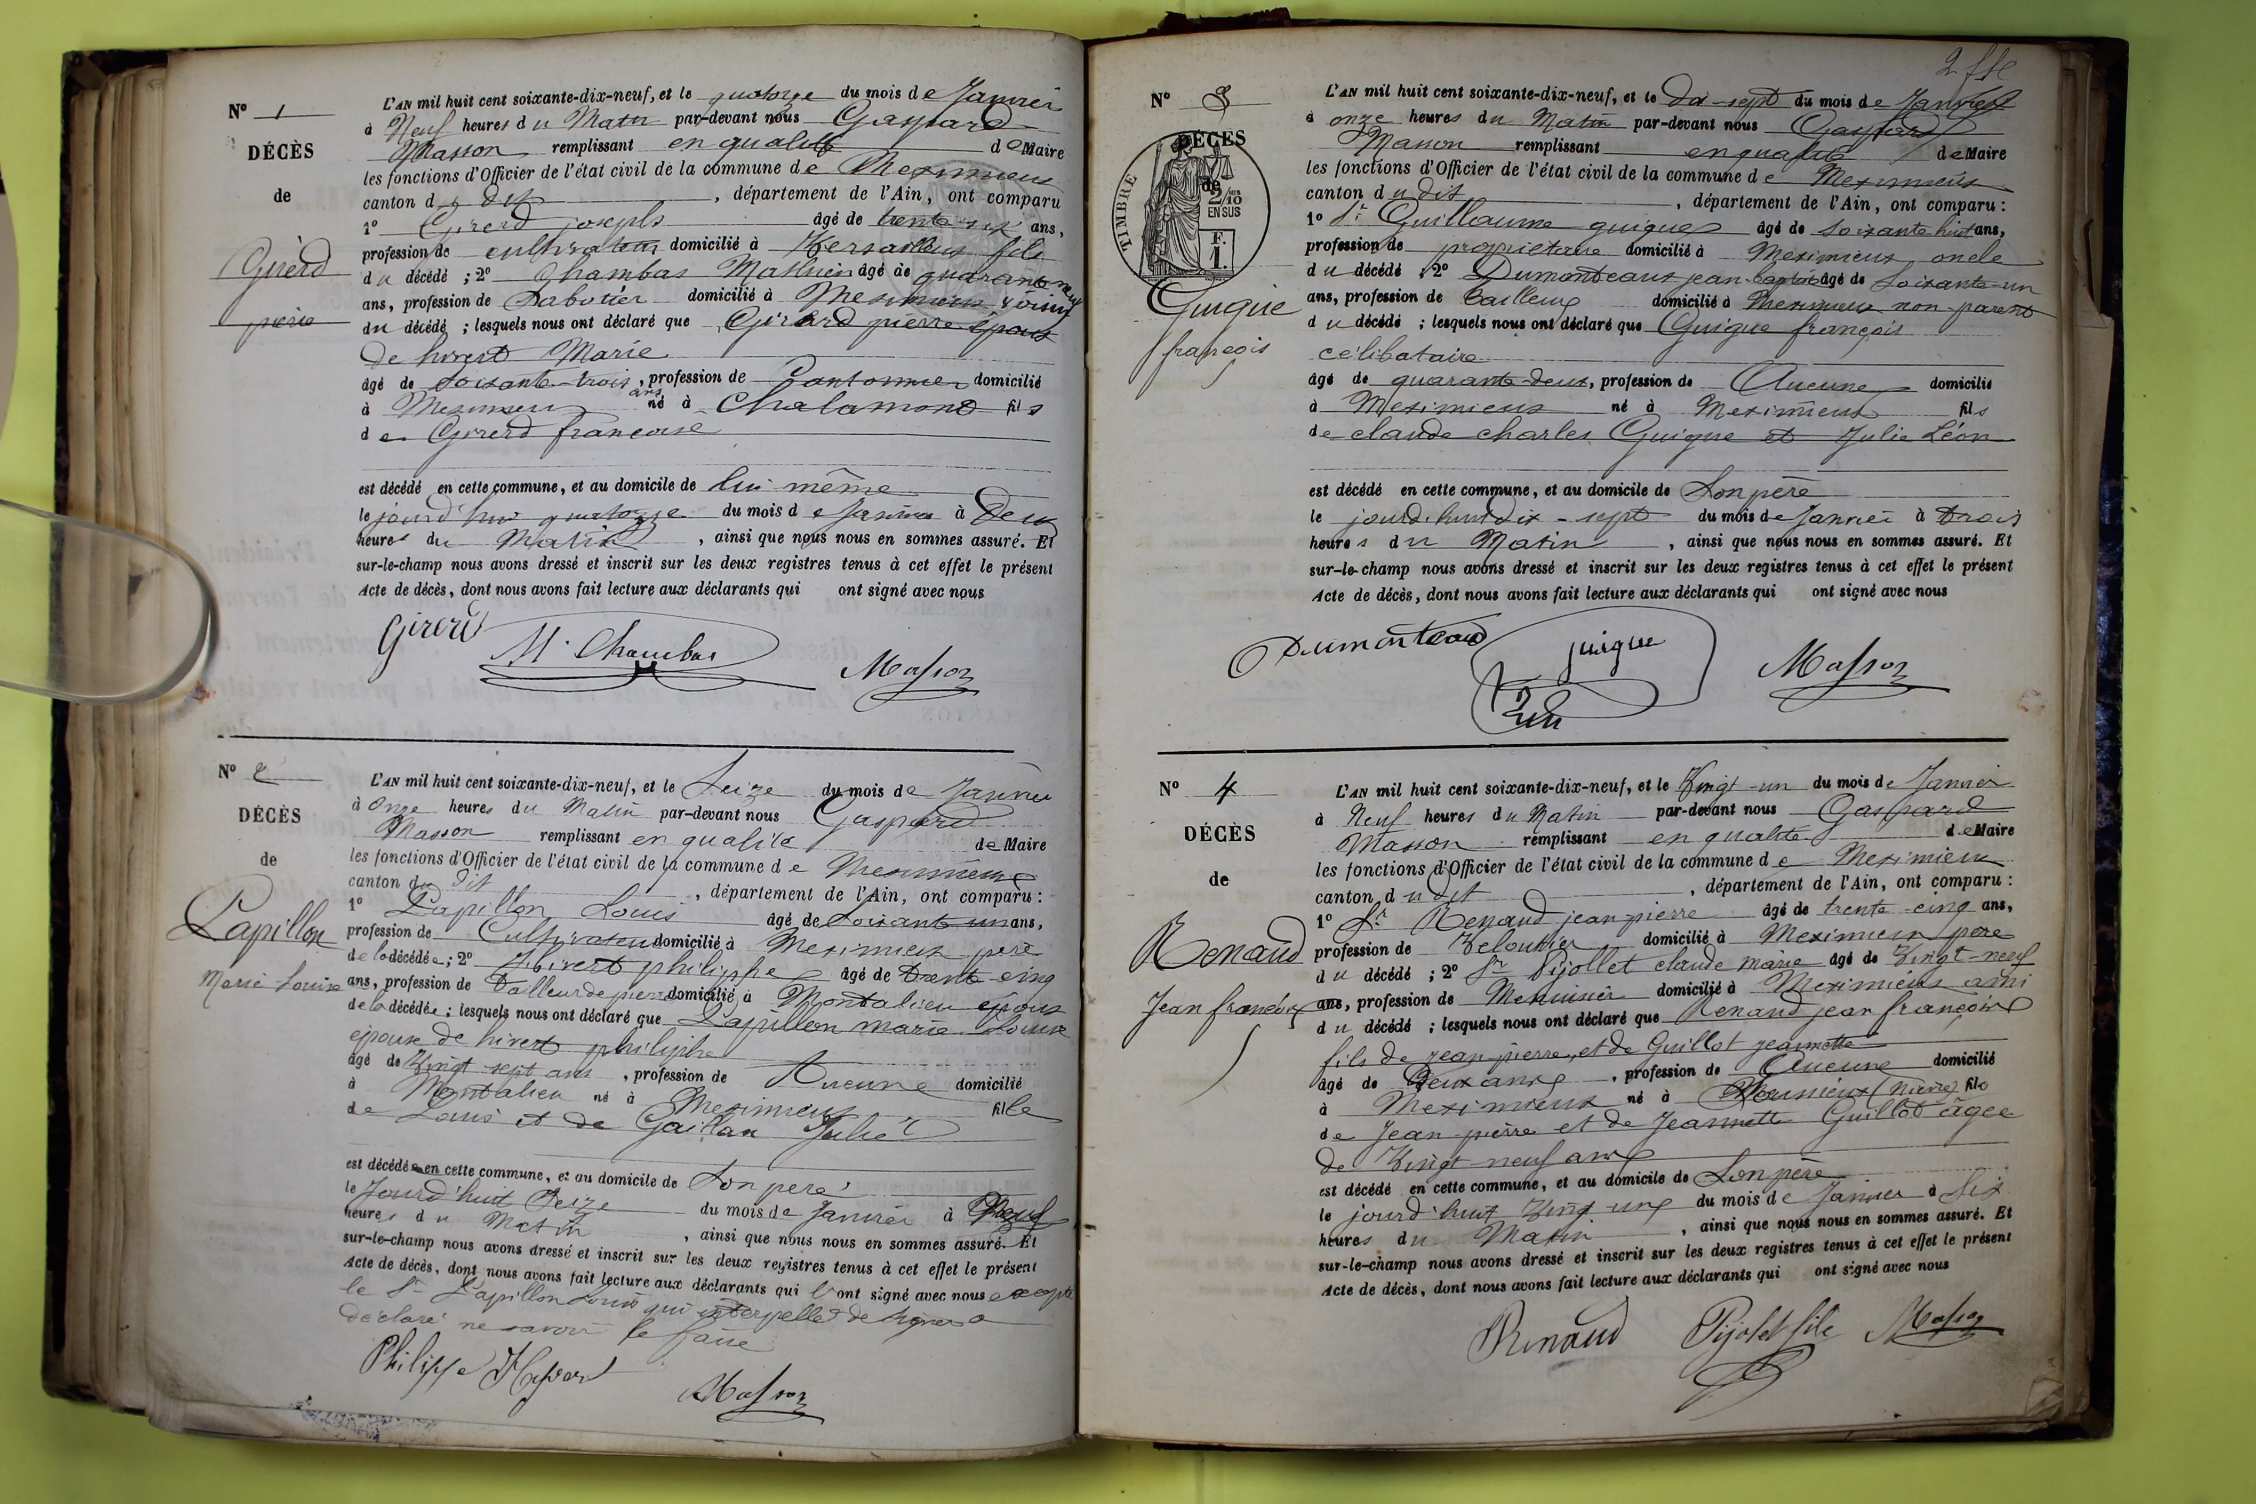 N° 1
DÉCÈS
de
Girerd
pierre
L'AN mil huit cent soixante-dix-neuf, et le quatorze du mois de Janvier
à Neuf heures du Matin par-devant nous Gaspard
Masson remplissant en qualité de Maire
les fonctions d'Officier de l'état civil de la commune de Meximieux
canton du dit, département de l'Ain, ont comparu
1° Girerd joseph âgé de trente-six ans,
profession de cultivateur domicilié à Versailleux fils
du décédé ; 2° Chambas Mathieu âgé de quarante neuf
ans, profession de Sabotier domicilié à Meximieux voisin
du décédé ; lesquels nous ont déclaré que Girerd pierre époux
de hivert Marie
âgé de soixante-trois ans, profession de Cantonnier domicilié
à Meximieux né à Chalamont fils
de Girerd francoise
est décédé en cette commune, et au domicile de lui même
le jourd'hui quatorze du mois de Janvier à Deux
heures du Matin, ainsi que nous nous en sommes assuré. Et
sur-le-champ nous avons dressé et inscrit sur les deux registres tenus à cet effet le présent
Acte de décès, dont nous avons fait lecture aux déclarants qui ont signé avec nous
Girerd
M. Chambas
Masson
N° 2
DÉCÈS
de
Papillon
Marie Louise
L'AN mil huit cent soixante-dix-neuf, et le Seize du mois de Janvier
à Onze heures du Matin par-devant nous Gaspard
Masson remplissant en qualité de Maire
les fonctions d'Officier de l'état civil de la commune de Meximieux
canton du dit, département de l'Ain, ont comparu :
1° Papillon Louis âgé de Soixante un ans,
profession de Cultivateur domicilié à Meximieux père
de la décédée ; 2° hivert philiphe âgé de trente cinq
ans, profession de tailleur de pierre domicilié à Montalieu époux
de la décédée ; lesquels nous ont déclaré que Papillon marie Louise
épouse de hivert philiphe
âgé de Vingt sept ans, profession de Aucune domicilié
à Montalieu né à Meximieux fille
de Louis et de Gaillan Julie
est décédée en cette commune, et au domicile de Son père
le Jourd'huit Seize du mois de Janvier à Neuf
heures du Matin, ainsi que nous nous en sommes assuré. Et
sur-le-champ nous avons dressé et inscrit sur les deux registres tenus à cet effet le présent
Acte de décès, dont nous avons fait lecture aux déclarants qui l'ont signé avec nous excepté
le Sr Papillon Louis qui interpellé de signer a
déclaré ne savoir le faire
Philippe
Masson
2
N° 3
DÉCÈS
de
TIMBRE
2/10
EN SUS
F.
1.
Guigue
françois
L'AN mil huit cent soixante-dix-neuf, et le Dix-sept du mois de Janvier
à onze heures du Matin par-devant nous Gaspard
Masson remplissant en qualité de Maire
les fonctions d'Officier de l'état civil de la commune de Meximieux
canton du dit, département de l'Ain, ont comparu :
1° Sr Guillaume guigues âgé de Soixante huit ans,
profession de propriétaire domicilié à Meximieux oncle
du décédé ; 2° Dumonteaux jean-baptiste âgé de Soixante-un
ans, profession de tailleur domicilié à Meximieux non parent
du décédé ; lesquels nous ont déclaré que Guigue françois
célibataire
âgé de quarante-deux, profession de Aucune domicilié
à Meximieux né à Meximieux fils
de claude charles Guigue et Julie Léon
est décédé en cette commune, et au domicile de Son père
le jourd'huit dix-sept du mois de Janvier à trois
heures du Matin, ainsi que nous nous en sommes assuré. Et
sur-le-champ nous avons dressé et inscrit sur les deux registres tenus à cet effet le présent
Acte de décès, dont nous avons fait lecture aux déclarants qui ont signé avec nous
Dumonteau
guigue
Masson
N° 4
DÉCÈS
de
Renaud
Jean françois
L'AN mil huit cent soixante-dix-neuf, et le Vingt-un du mois de Janvier
à Neuf heures du Matin par-devant nous Gaspard
Masson remplissant en qualité de Maire
les fonctions d'Officier de l'état civil de la commune de Meximieux
canton du dit, département de l'Ain, ont comparu :
1° Sr Renaud jean pierre âgé de trente-cinq ans,
profession de Veloutier domicilié à Meximieux père
du décédé ; 2° Sr Pijollet claude marie âgé de Vingt-neuf
ans, profession de Menuisier domicilié à Meximieux ami
du décédé ; lesquels nous ont déclaré que Renaud jean françois
fils de jean pierre, et de Guillot jeannette
âgé de Deux ans, profession de Aucune domicilié
à Meximieux né à fils
de Jean pierre et de Jeannette Guillot âgée
de Vingt-neuf ans
est décédé en cette commune, et au domicile de Son père
le jourd'huit Vingt un du mois de Janvier à Six
heures du Matin, ainsi que nous nous en sommes assuré. Et
sur-le-champ nous avons dressé et inscrit sur les deux registres tenus à cet effet le présent
Acte de décès, dont nous avons fait lecture aux déclarants qui ont signé avec nous
Renaud
Pijolet fils
Masson